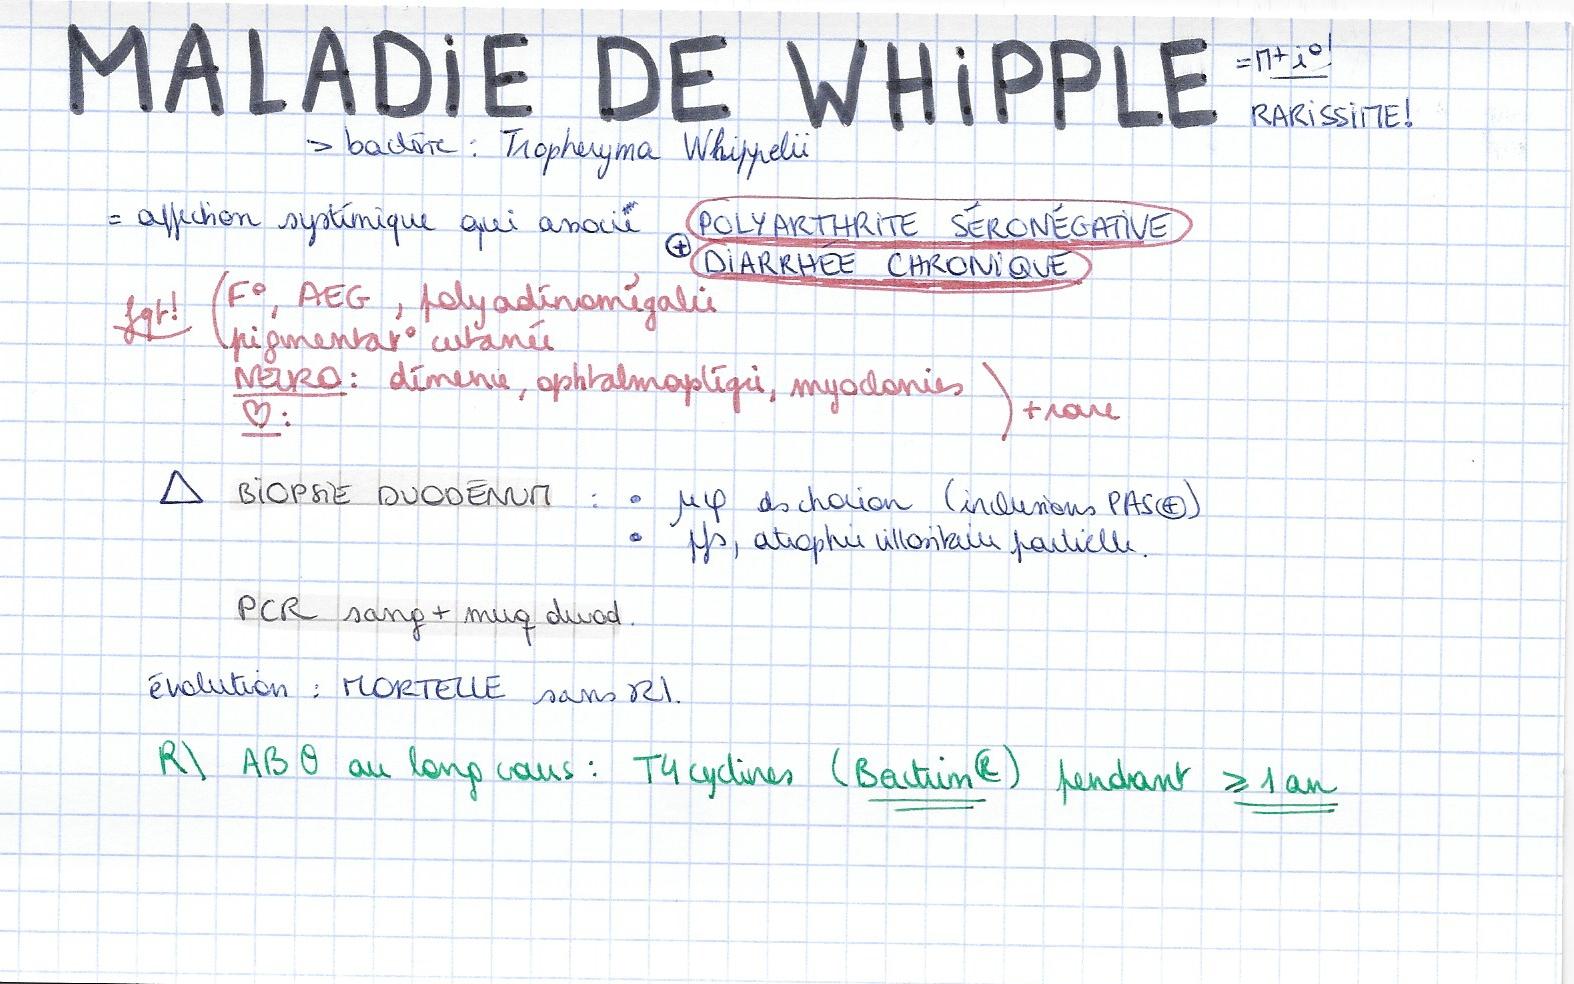 MALADiE DE WHiPPLE = M+ i°!
RARiSSiME!
> bactérie : Tropheryma Whippelii
= affection systémique qui associe POLYARTHRITE SÉRONÉGATIVE
⊕ DIARRHÉE CHRONIQUE
fqt! (F°, AEG, polyadénomégalie
pigmentat° cutanée
NEURO : démence, ophtalmoplégie, myoclonies
♡ :
) + rare
△ BiOPSiE DUODÉNUM : • μφ ds chorion (inclusions PAS⊕)
• pfs, atrophie villositaire partielle.
PCR sang + muq duod.
évolution : MORTELLE sans R\.
R\ ABθ au long cours : T4cyclines (Bactrim®) pendant ≥ 1 an